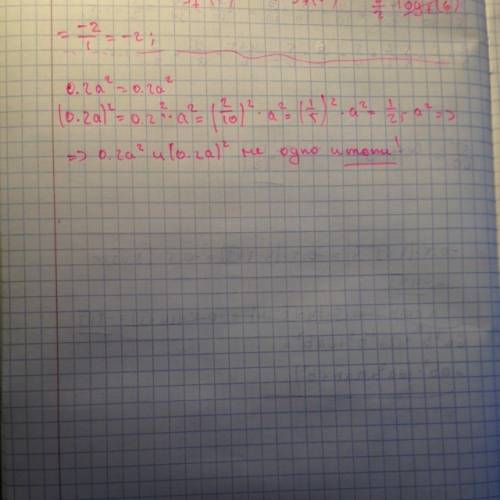 = -2/1 = -2;
0.2a² = 0.2a²
(0.2a)² = 0.2² · a² = (2/10)² · a² = (1/5)² · a² = 1/25 a² =>
=> 0.2a² и (0.2a)² не одно и тоже!